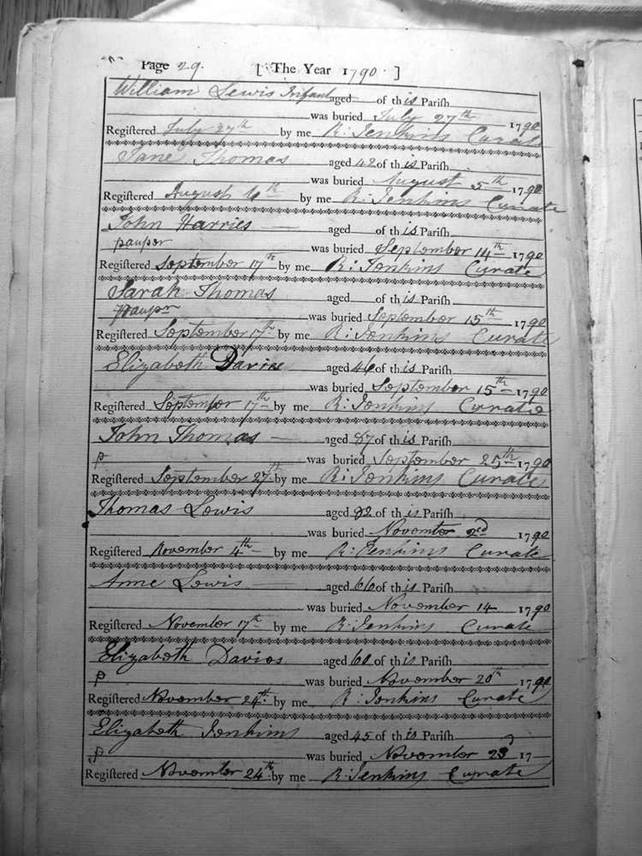 Page 29. [ The Year 1790 ]
William Lewis Infant aged of this Parish
was buried July 27th 1790
Registered July 27th by me R: Jenkins Curate
Jane Thomas aged 42 of this Parish
was buried August 5th 1790
Registered August by me R: Jenkins Curate
John Harries aged of this Parish
pauper was buried September 14th 1790
Registered September 17th by me R: Jenkins Curate
Sarah Thomas aged of this Parish
paupr was buried September 15th 1790
Registered September 17th by me R: Jenkins Curate
Elizabeth Davies aged 46 of this Parish
was buried September 15th 1790
Registered September 17th by me R: Jenkins Curate
John Thomas aged 87 of this Parish
p was buried September 25th 1790
Registered September 27th by me R: Jenkins Curate
Thomas Lewis aged of this Parish
was buried November 2nd 1790
Registered November 4th by me R: Jenkins Curate
Anne Lewis aged 66 of this Parish
was buried November 14 1790
Registered November 17th by me R: Jenkins Curate
Elizabeth Davies aged 60 of this Parish
p was buried November 20th 1790
Registered November 24th by me R: Jenkins Curate
Elizabeth Jenkins aged 45 of this Parish
p was buried November 23 17
Registered November 24th by me R: Jenkins Curate